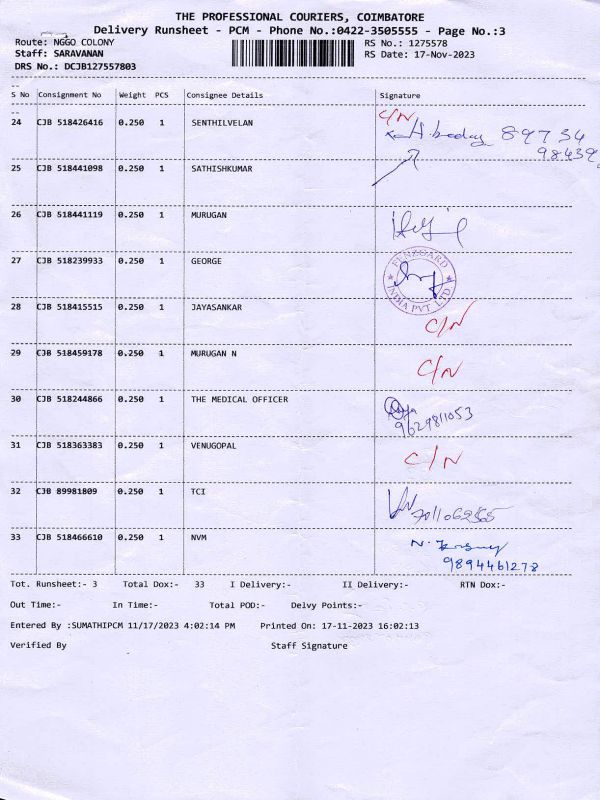 THE PROFESSIONAL COURIERS, COIMBATORE
Delivery Runsheet - PCM - Phone No.:0422-3505555 - Page No.:3
Route: NGGO COLONY RS No.: 1275578
Staff: SARAVANAN RS Date: 17-Nov-2023
DRS No.: DCJB127557803
S No Consignment No Weight PCS Consignee Details Signature
24 CJB 518426416 0.250 1 SENTHILVELAN C/N 89734
98439
25 CJB 518441098 0.250 1 SATHISHKUMAR
26 CJB 518441119 0.250 1 MURUGAN
27 CJB 518239933 0.250 1 GEORGE FENZGARD INDIA PVT. LTD
28 CJB 518415515 0.250 1 JAYASANKAR C/N
29 CJB 518459178 0.250 1 MURUGAN N C/N
30 CJB 518244866 0.250 1 THE MEDICAL OFFICER
9629811053
31 CJB 518363383 0.250 1 VENUGOPAL C/N
32 CJB 89981809 0.250 1 TCI
33 CJB 518466610 0.250 1 NVM
9894461278
Tot. Runsheet:- 3 Total Dox:- 33 I Delivery:- II Delivery:- RTN Dox:-
Out Time:- In Time:- Total POD:- Delvy Points:-
Entered By :SUMATHIPCM 11/17/2023 4:02:14 PM Printed On: 17-11-2023 16:02:13
Verified By Staff Signature